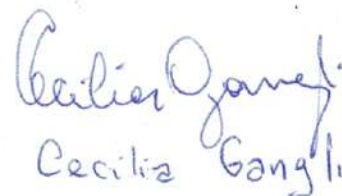 Cecilia Gangli
Cecilia Gangli